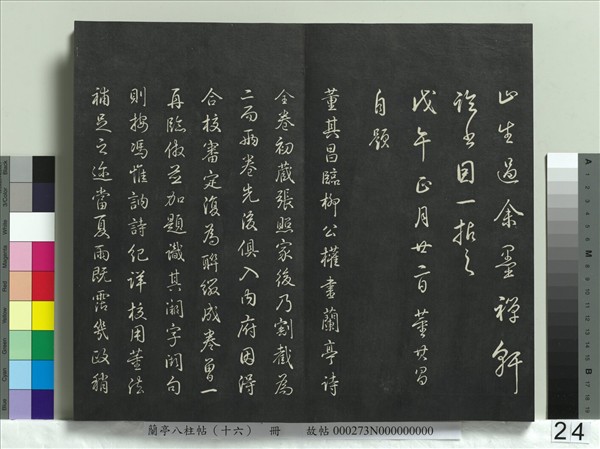 止生過余墨禪軒
論書因一拈之
戊午正月廿二日董其昌
自題
董其昌臨柳公權書蘭亭詩
全卷初藏張照家後乃割截為
二而兩卷先後俱入內府因得
合校審定復為聯綴成卷曾一
再臨倣並加題識其闕字闕句
則按馮惟訥詩紀詳校用董法
補足之迹當夏雨既霑幾政稍
蘭亭八柱帖（十六） 冊 故帖000273N000000000
24